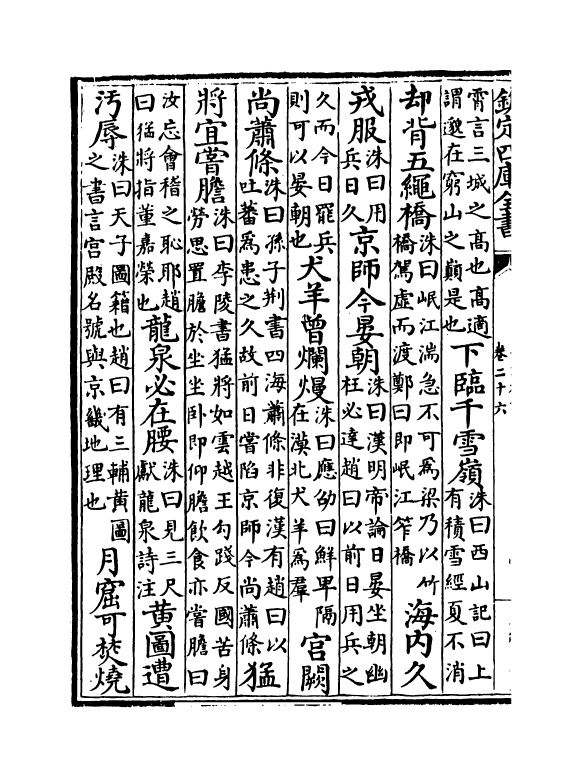 欽定四庫全書
卷二十六
霄言三城之髙也髙適謂邈在窮山之巔是也下臨千雪嶺洙曰西山記曰上有積雪經夏不消
却背五繩橋洙曰岷江湍急不可為梁乃以竹橋駕虛而渡鄭曰即岷江笮橋海内久
戎服洙曰用兵日久京師今晏朝洙曰漢明帝論日晏坐朝幽枉必達趙曰以前日用兵之
久而今日罷兵則可以晏朝也犬羊曾爛熳洙曰應劭曰鮮卑隔在漠北犬羊為羣宫闕
尚蕭條洙曰孫子荆書四海蕭條非復漢有趙曰以吐蕃為患之久故前日嘗陷京師今尚蕭條猛
將宜嘗膽洙曰李陵書猛將如雲越王勾踐反國苦身勞思置膽於坐坐卧即仰膽飲食亦嘗膽曰
汝忘會稽之恥耶趙曰猛將指董嘉榮也龍泉必在腰洙曰見三尺獻龍泉詩注黄圖遭
汚辱洙曰天子圖籍也趙曰有三輔黄圖之書言宫殿名號與京畿地理也月窟可焚燒